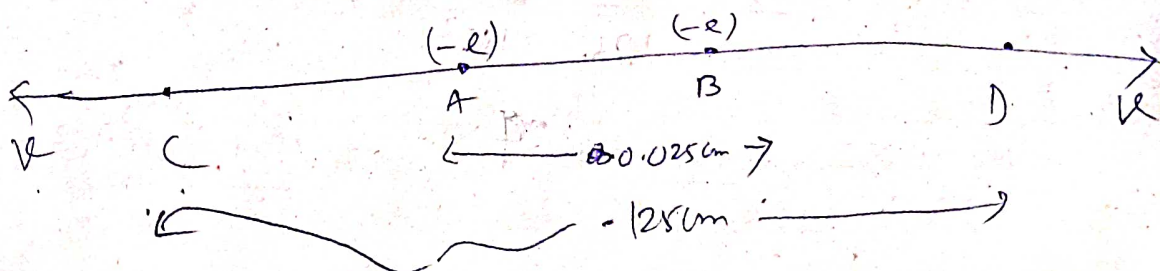 (-e) (-e)
A B
V C D V
0.025cm
.125cm